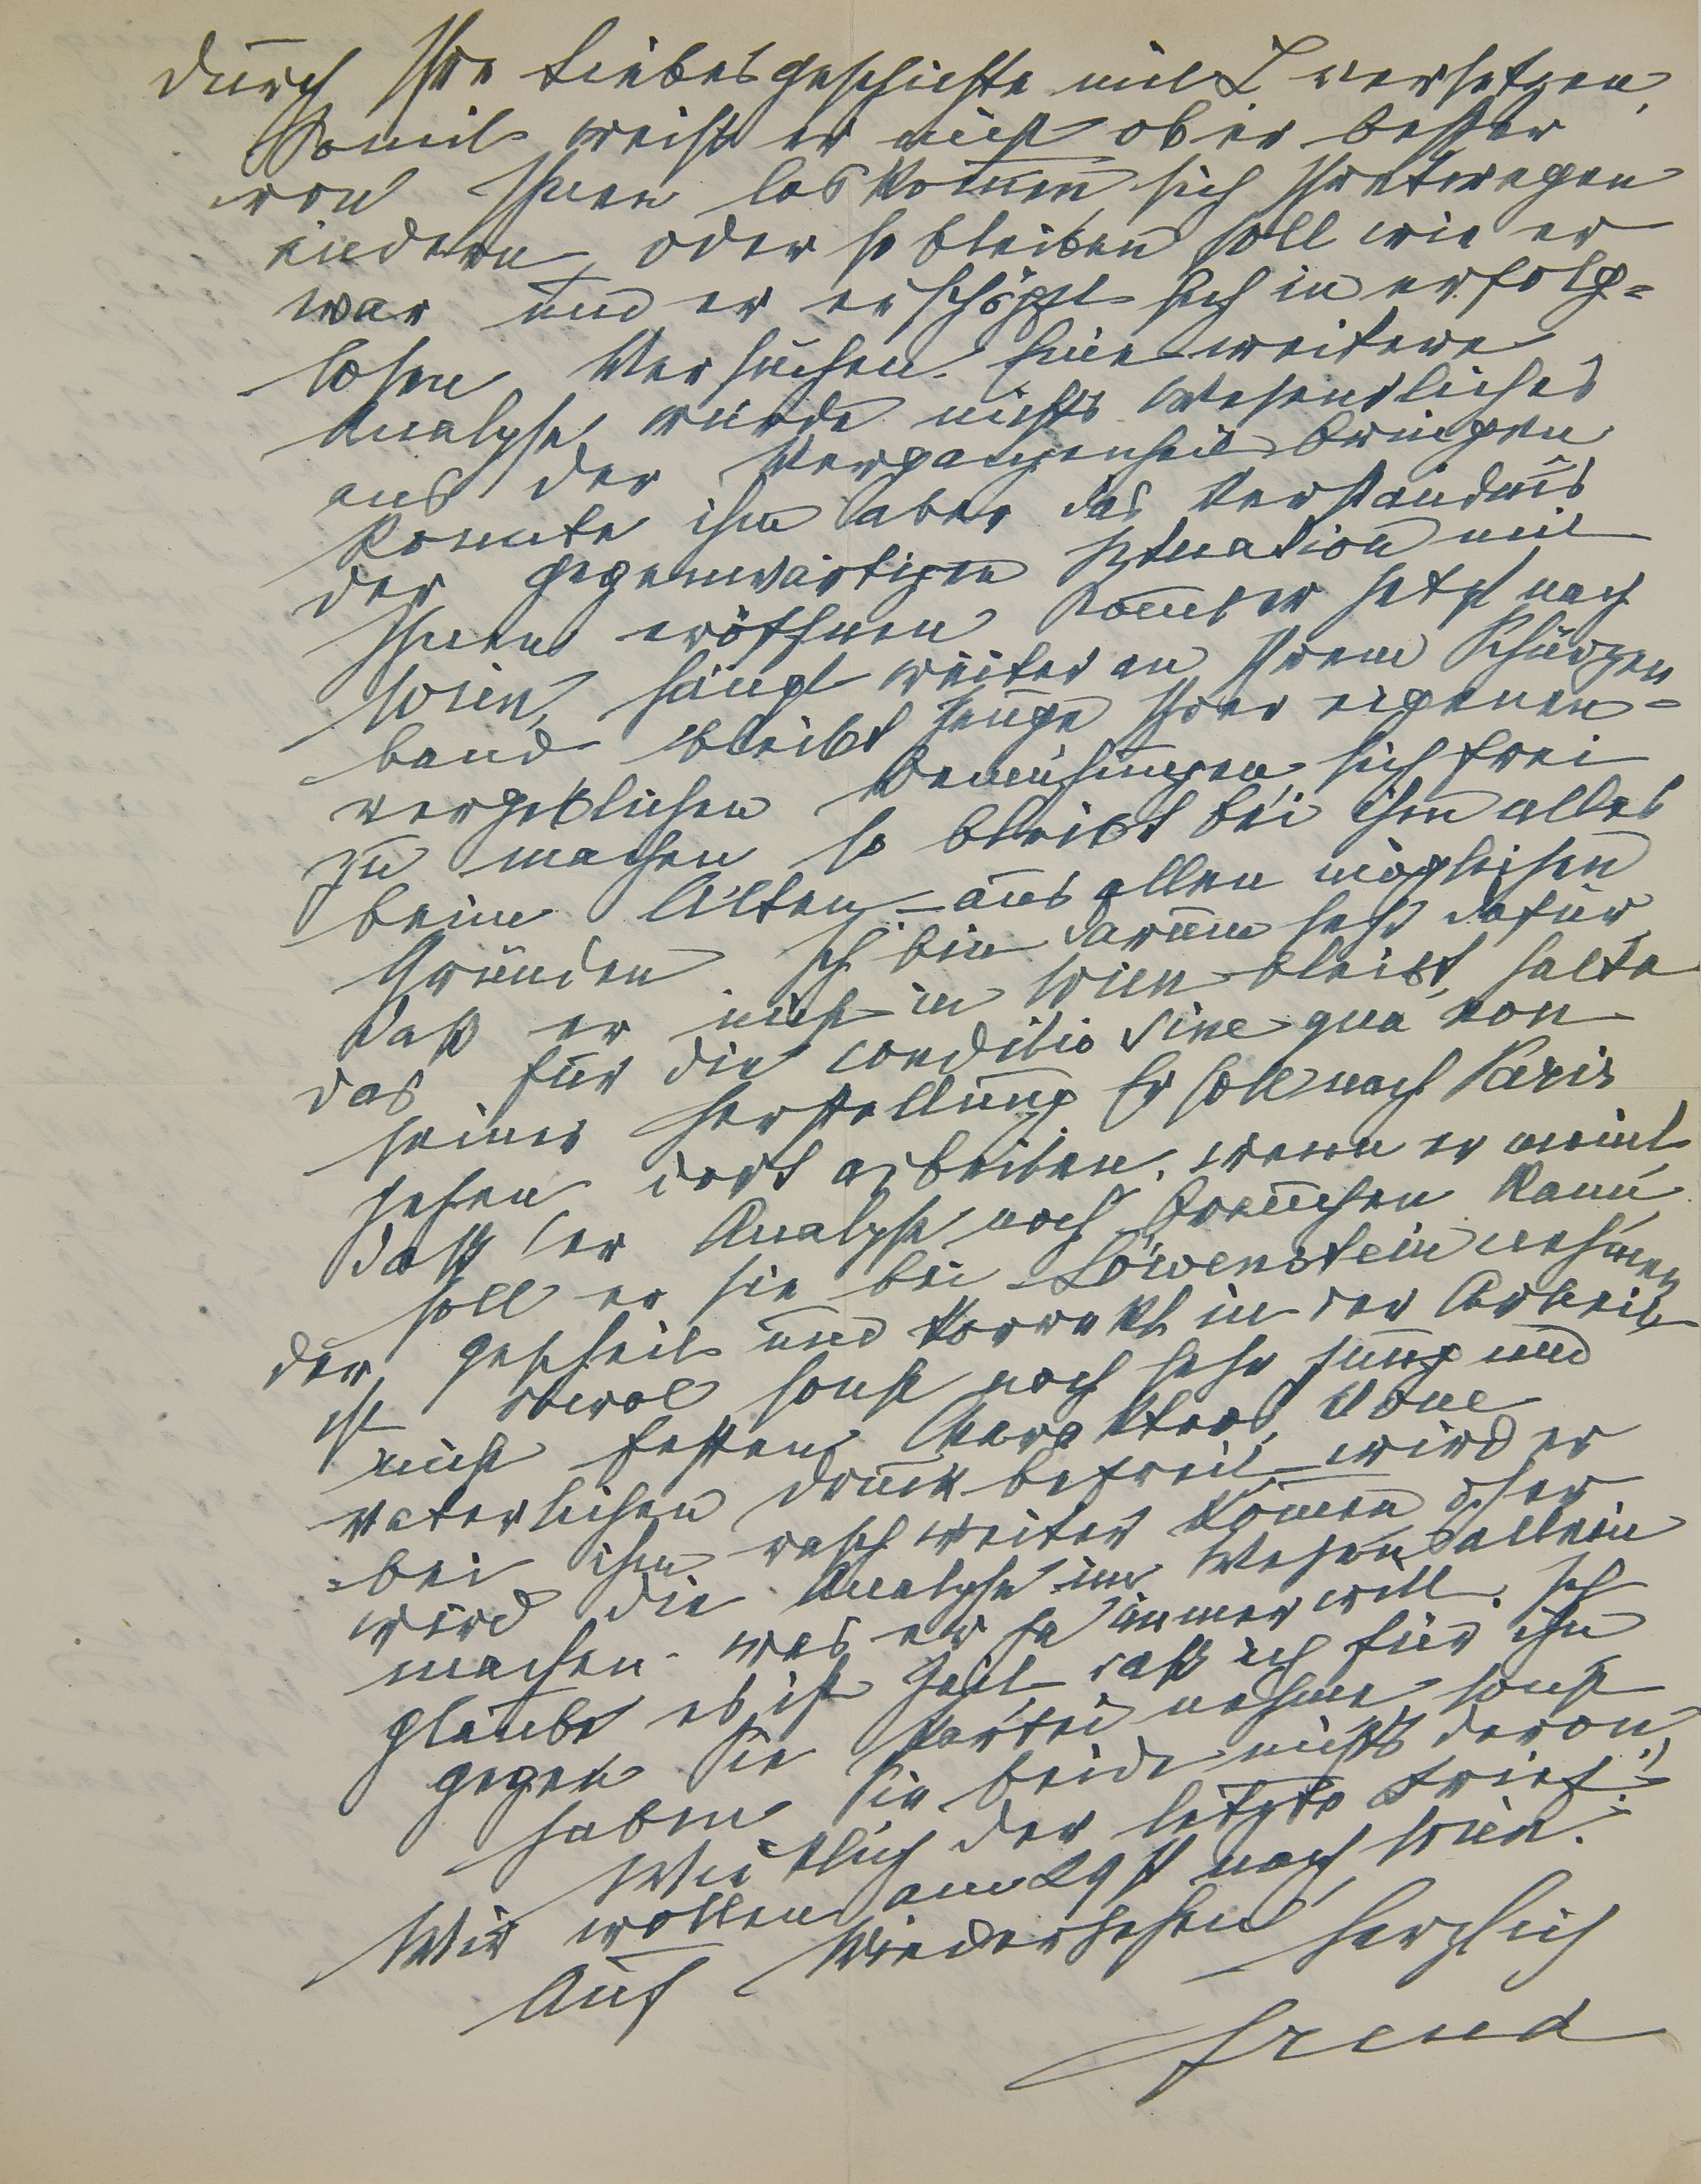 durch Ihre Liebesgeschichte mit L versetzen.
Somit weiß er nicht ob er besser
von Ihnen loskommen, sich Ihretwegen
ändern, oder so bleiben soll wie er
war und er erschöpft sich in erfolg-
losen Versuchen. Eine weitere
Analyse würde nichts Wesentliches
aus der Vergangenheit bringen
konnte ihm aber das Verständnis
der gegenwärtigen Situation mit
Ihnen eröffnen. Kommt er jetzt nach
Wien, hängt weiter an Ihrem Schürzen
band bleibt Zeuge Ihrer eigenen
vergeblichen Bemühungen sich frei
zu machen so bleibt bei ihm alles
beim Alten – aus allen möglichen
Gründen. Ich bin darum sehr dafür,
daß er nicht in Wien bleibt, halte
das für die conditio sine qua non
seiner Herstellung. Er soll nach Paris
gehen dort arbeiten. wenn er meint
daß er Analyse noch brauchen kann,
soll er sie bei Löwenstein nehmen
der, gescheit und korrekt in der Arbeit
ist obwol sonst noch sehr jung und
nicht festen Charakters. Vom
vaterlichen Druck befreit wird er
bei ihm rasch weiter kommen oder
wird die Analyse im Wesen allein
machen. was er ja immer will. Ich
glaube es ist Zeit, daß ich für ihn
gegen Sie Partei nehme, sonst
haben Sie beide nichts davon.
Wirklich der letzte Brief!
Wir wollen am 29 st nach Wien.
Auf Wiedersehen! herzlich
Freud